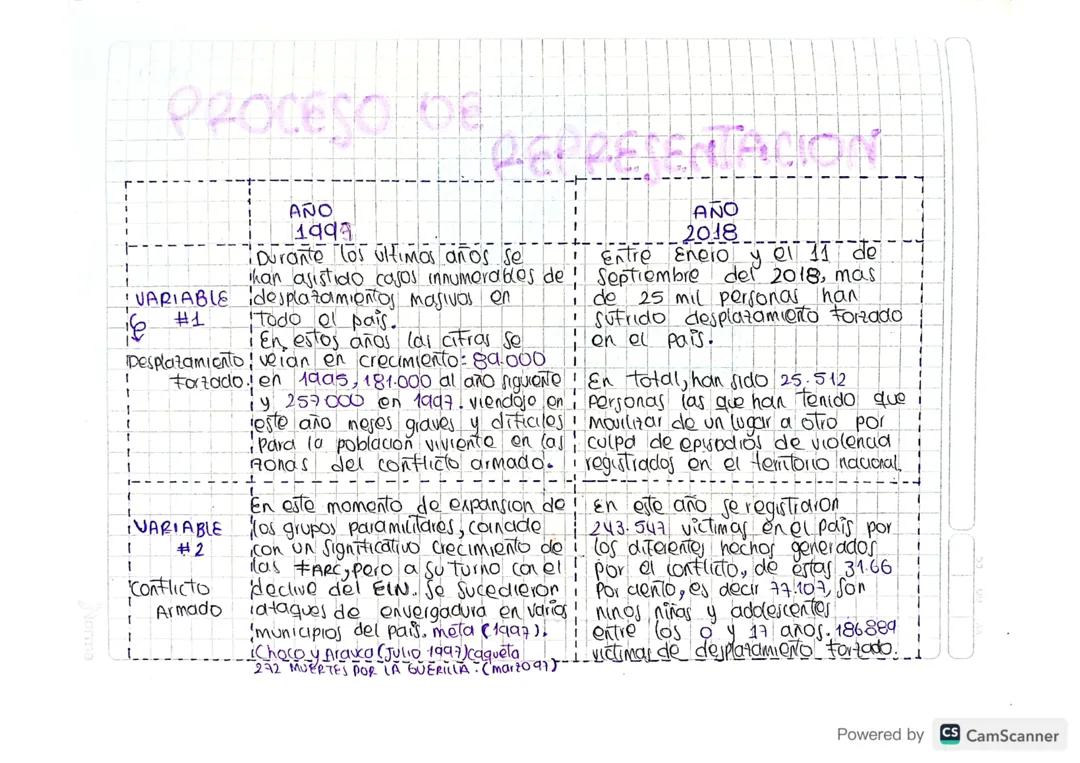 PROCESO DE
REPRESENTACION
AÑO
1997
AÑO
2018
VARIABLE
#1
Desplazamiento
forzado.
Durante los ultimos años se
han asistido casos innumorables de
desplazamientos masivos en
todo el país.
En estos años las cifras se
veían en crecimiento: 89.000
en 1995, 181.000 al año siguiente
y 257000 en 1997. viendojo en
este año meses graves y dificiles
para la poblacion viviente en las
zonas del conflicto armado.
Entre Enero y el 11 de
Septiembre del 2018, mas
de 25 mil personas han
sufrido desplazamiento forzado
en el país.
En total, han sido 25.512
Personas las que han tenido que
movilizar de un lugar a otro por
culpa de episodios de violencia
registrados en el territorio nacional.
VARIABLE
#2
Conflicto
Armado
En este momento de expansion de
los grupos paramilitares, coincide
con un significativo crecimiento de
las FARC, pero a su turno con el
declive del ELN. Se sucedieron
ataques de envergadura en varios
municipios del país. meta (1997).
Choco y Arauca (Julio 1997) caqueta
272 MUERTES POR LA GUERILLA. (marzo 97)
En este año se registraron
243.547 victimas en el país por
los diferentes hechos generados
por el conflicto, de estas 31.66
Por ciento, es decir 77.107, son
niños niñas y adolescentes
entre los 0 y 17 años. 186889
victimas de desplazamiento forzado.
Norma
Powered by CS CamScanner